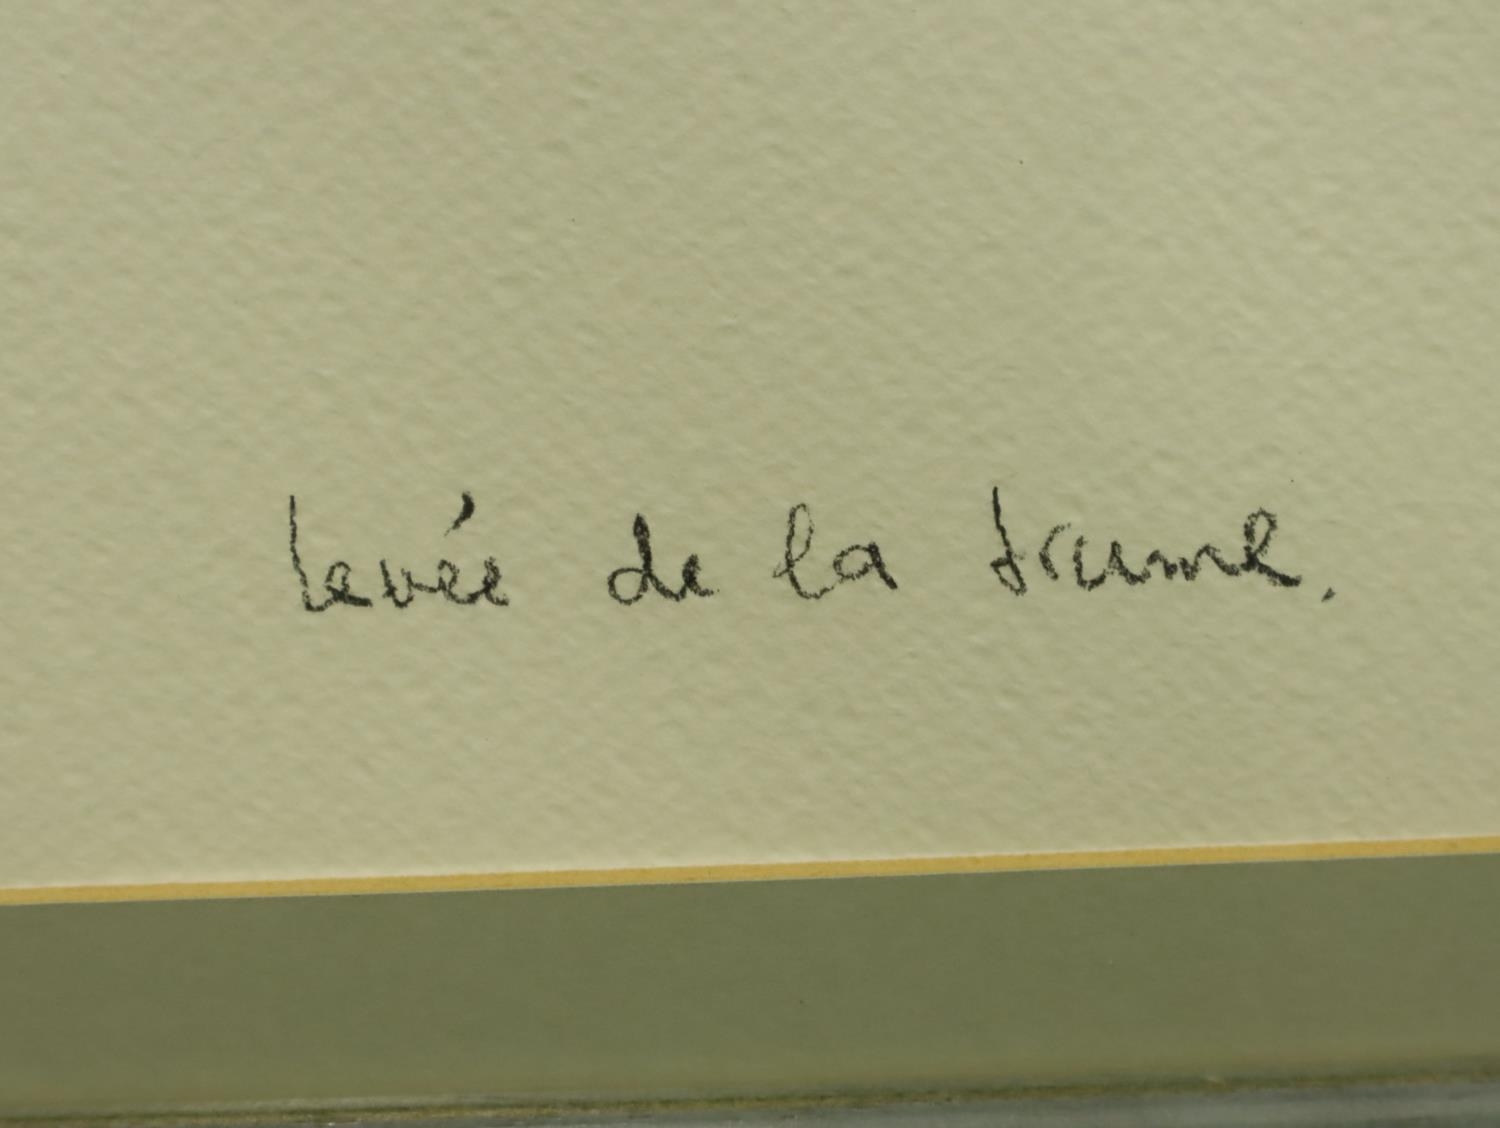 levée de la brume.